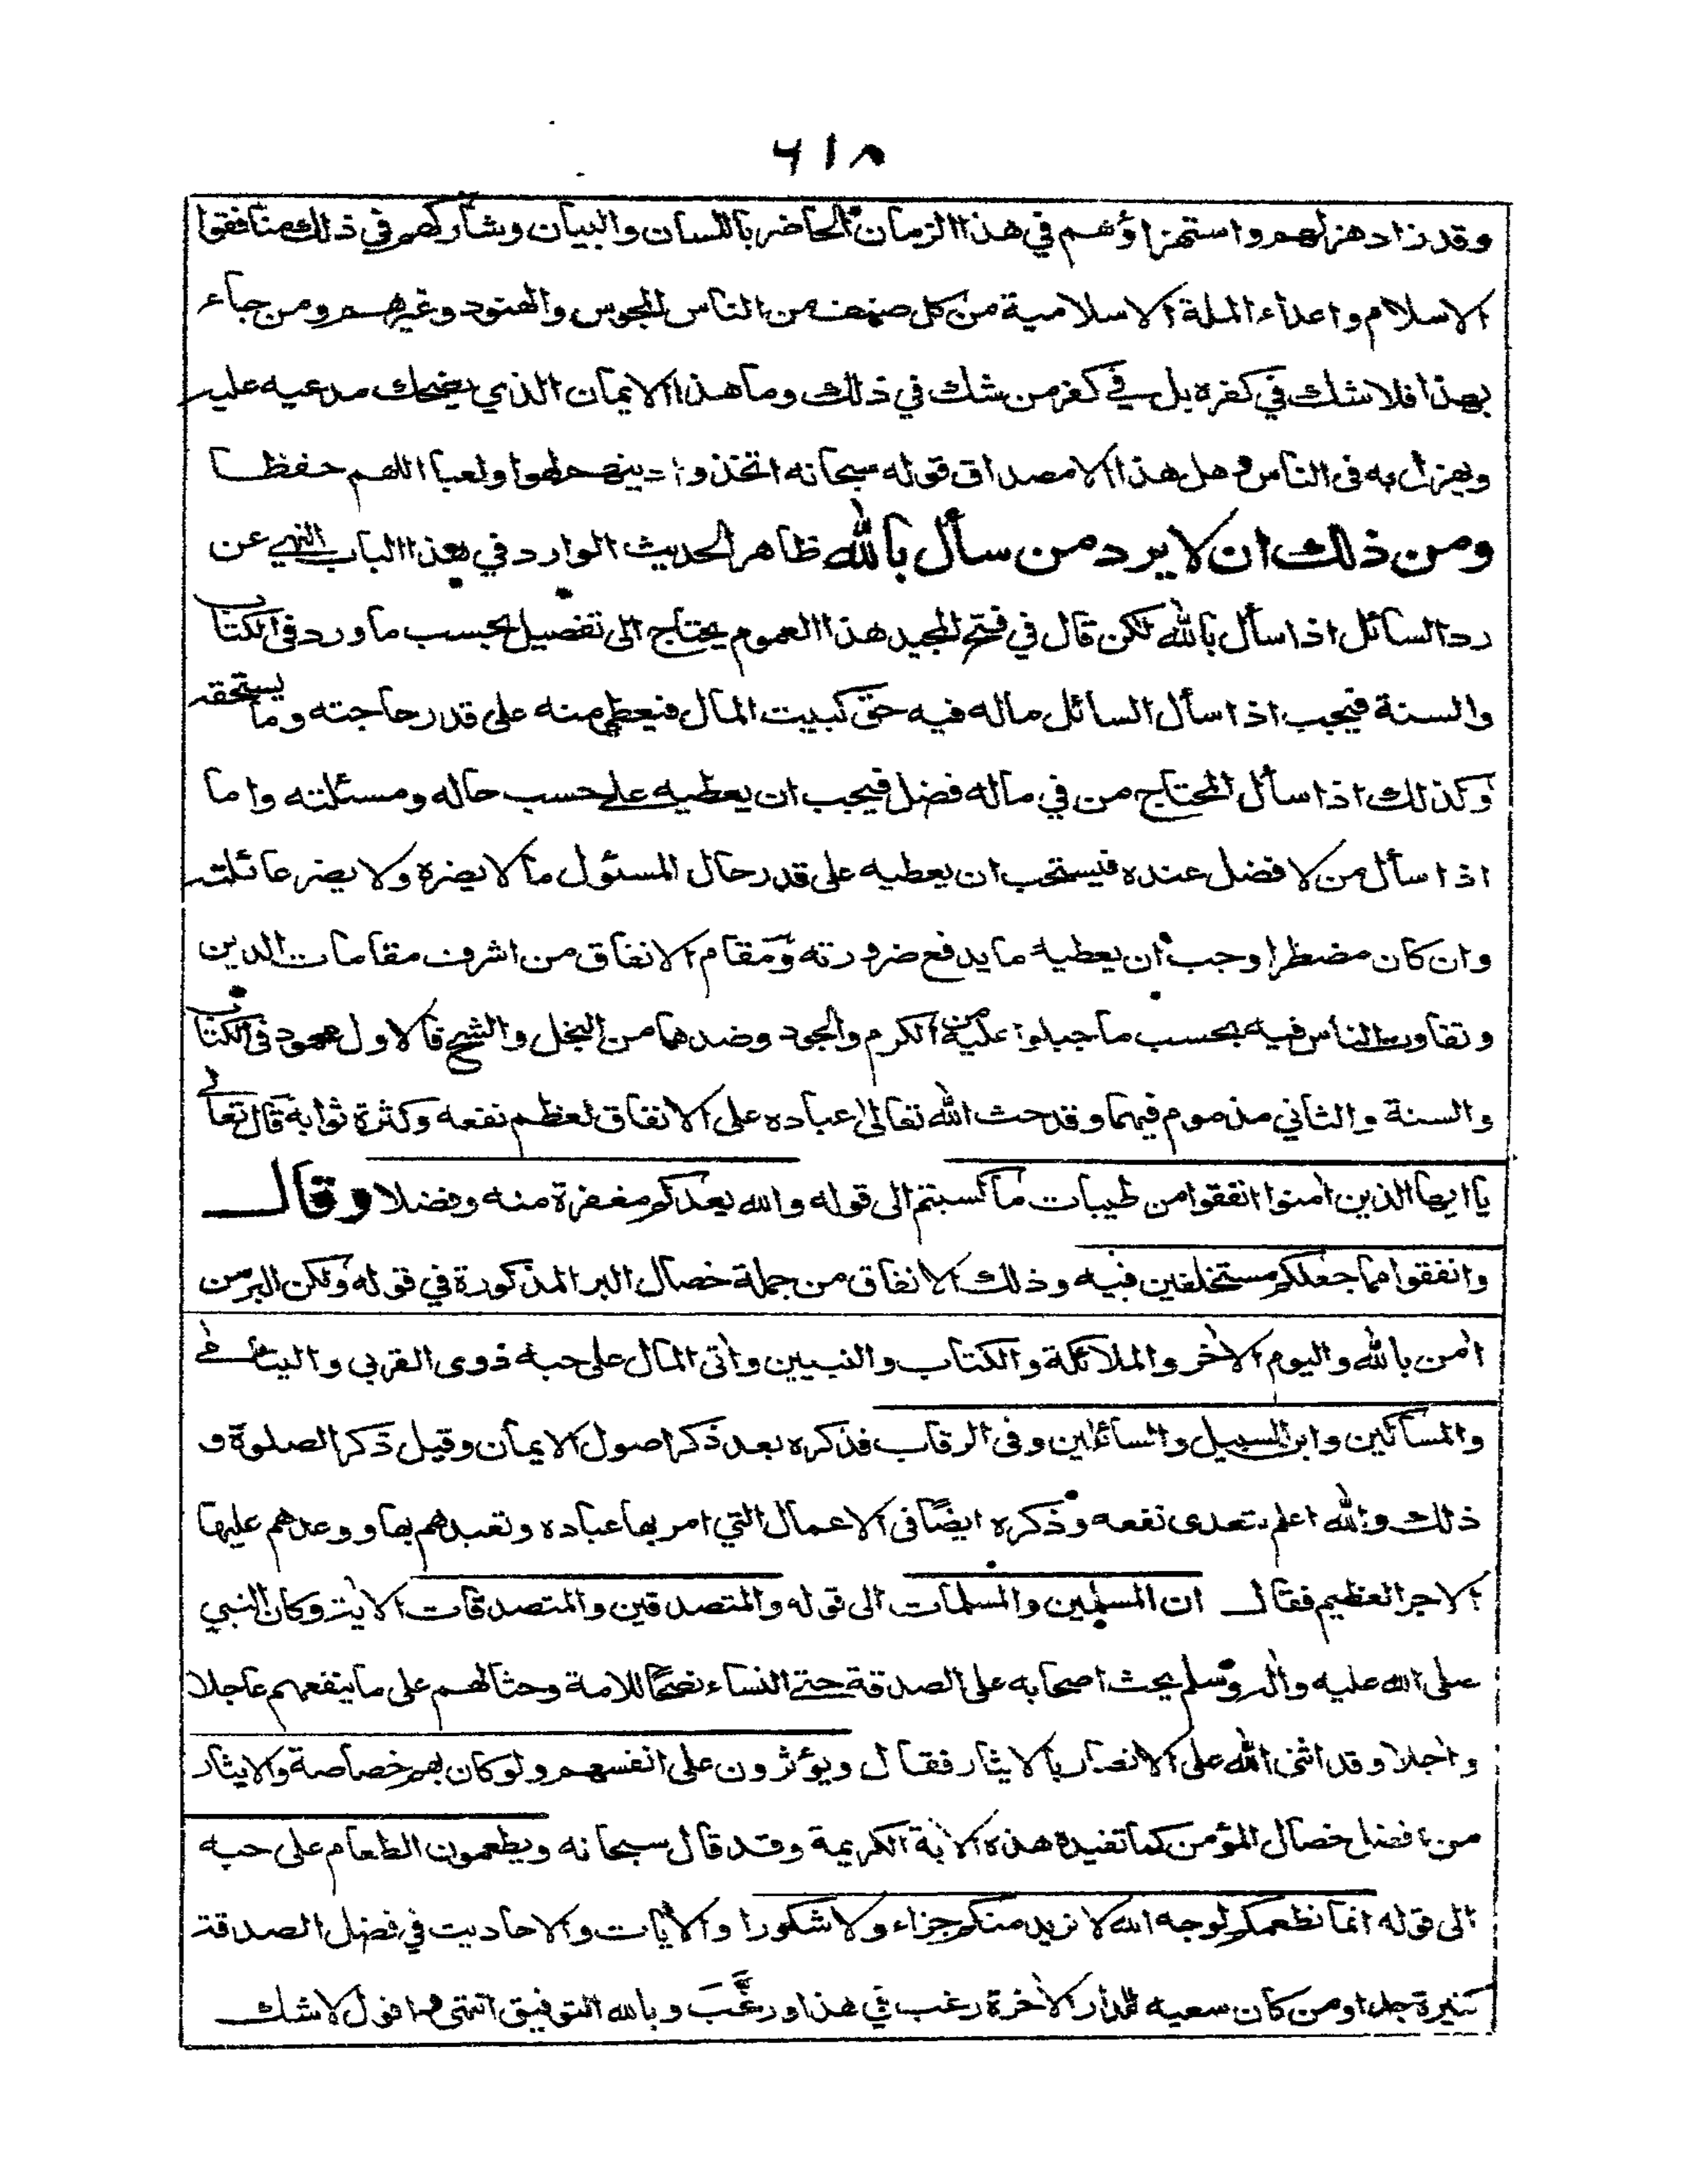 ٦١٨
وقد زاد هزلهم واستهزاؤهم في هذا الزمان الحاضر باللسان والبيان وشاركهم في ذلك منافقوا
الاسلام واعداء الملة الاسلامية من كل صنف من الناس المجوس والهنود وغيرهم ومن جاء
بهذا فلا شك في كفره بل في كفر من شك في ذلك وما هذا الايمان الذي يضحك مدعيه عليه
ويهزل به فى الناس وهل هذا الا مصداق قوله سبحانه اتخذوا دينهم لهوا ولعبا اللهم حفظا
ومن ذلك ان لا يرد من سأل بالله ظاهر الحديث الوارد في هذا الباب النهي عن
رد السائل اذا سأل بالله لكن قال في فتح المجيد هذا العموم يحتاج الى تفصيل بحسب ما ورد فى الكتاب
والسنة فيجب اذا سأل السائل ماله فيه حق كبيت المال فيعطى منه على قدر حاجته وما يستحقه
وكذلك اذا سأل المحتاج من في ماله فضل فيجب ان يعطيه على حسب حاله ومسئلته واما
اذا سأل من لا فضل عنده فيستحب ان يعطيه على قدر حال المسئول ما لا يضره ولا يضر عائلته
وان كان مضطرا وجب ان يعطيه ما يدفع ضرورته ومقام الانفاق من اشرف مقامات الدين
وتفاوت الناس فيه بحسب ما جبلوا عليه من الكرم والجود وضدهما من البخل والشح فالاول محمود فى الكتاب
والسنة والثاني مذموم فيهما وقد حث الله تعالى عباده على الانفاق لعظم نفعه وكثرة ثوابه قال تعالى
يا ايها الذين امنوا انفقوا من طيبات ما كسبتم الى قوله والله يعدكم مغفرة منه وفضلا وقال
وانفقوا مما جعلكم مستخلفين فيه وذلك الانفاق من جملة خصال البر المذكورة في قوله ولكن البر من
اٰمن بالله واليوم الاٰخر والملائكة والكتاب والنبيين واٰتى المال على حبه ذوى القربى واليتامى
والمساكين وابن السبيل والسائلين وفى الرقاب فذكره بعد ذكر اصول الايمان وقبل ذكر الصلوة و
ذلك والله اعلم لتعدى نفعه وذكره ايضًا فى الاعمال التي امر بها عباده وتعبدهم بها ووعدهم عليها
الاجر العظيم فقال ان المسلمين والمسلمات الى قوله والمتصدقين والمتصدقات الاية وكان النبي
صلى الله عليه واله وسلم يحث اصحابه على الصدقة حتى النساء نصحًا للامة وحثا لهم على ما ينفعهم عاجلا
واٰجلا وقد اثنى الله على الانصار بالايثار فقال ويؤثرون على انفسهم ولو كان بهم خصاصة والايثار
من افضل خصال المؤمن كما تفيده هذه الاية الكريمة وقد قال سبحانه ويطعمون الطعام على حبه
الى قوله انما نطعمكم لوجه الله لا نريد منكم جزاء ولا شكورا والاٰيات والاحاديث في فضل الصدقة
كثيرة جدا ومن كان سعيه للدار الاٰخرة رغب في هذا ورغَّبَ وبالله التوفيق انتهى اقول لا شك